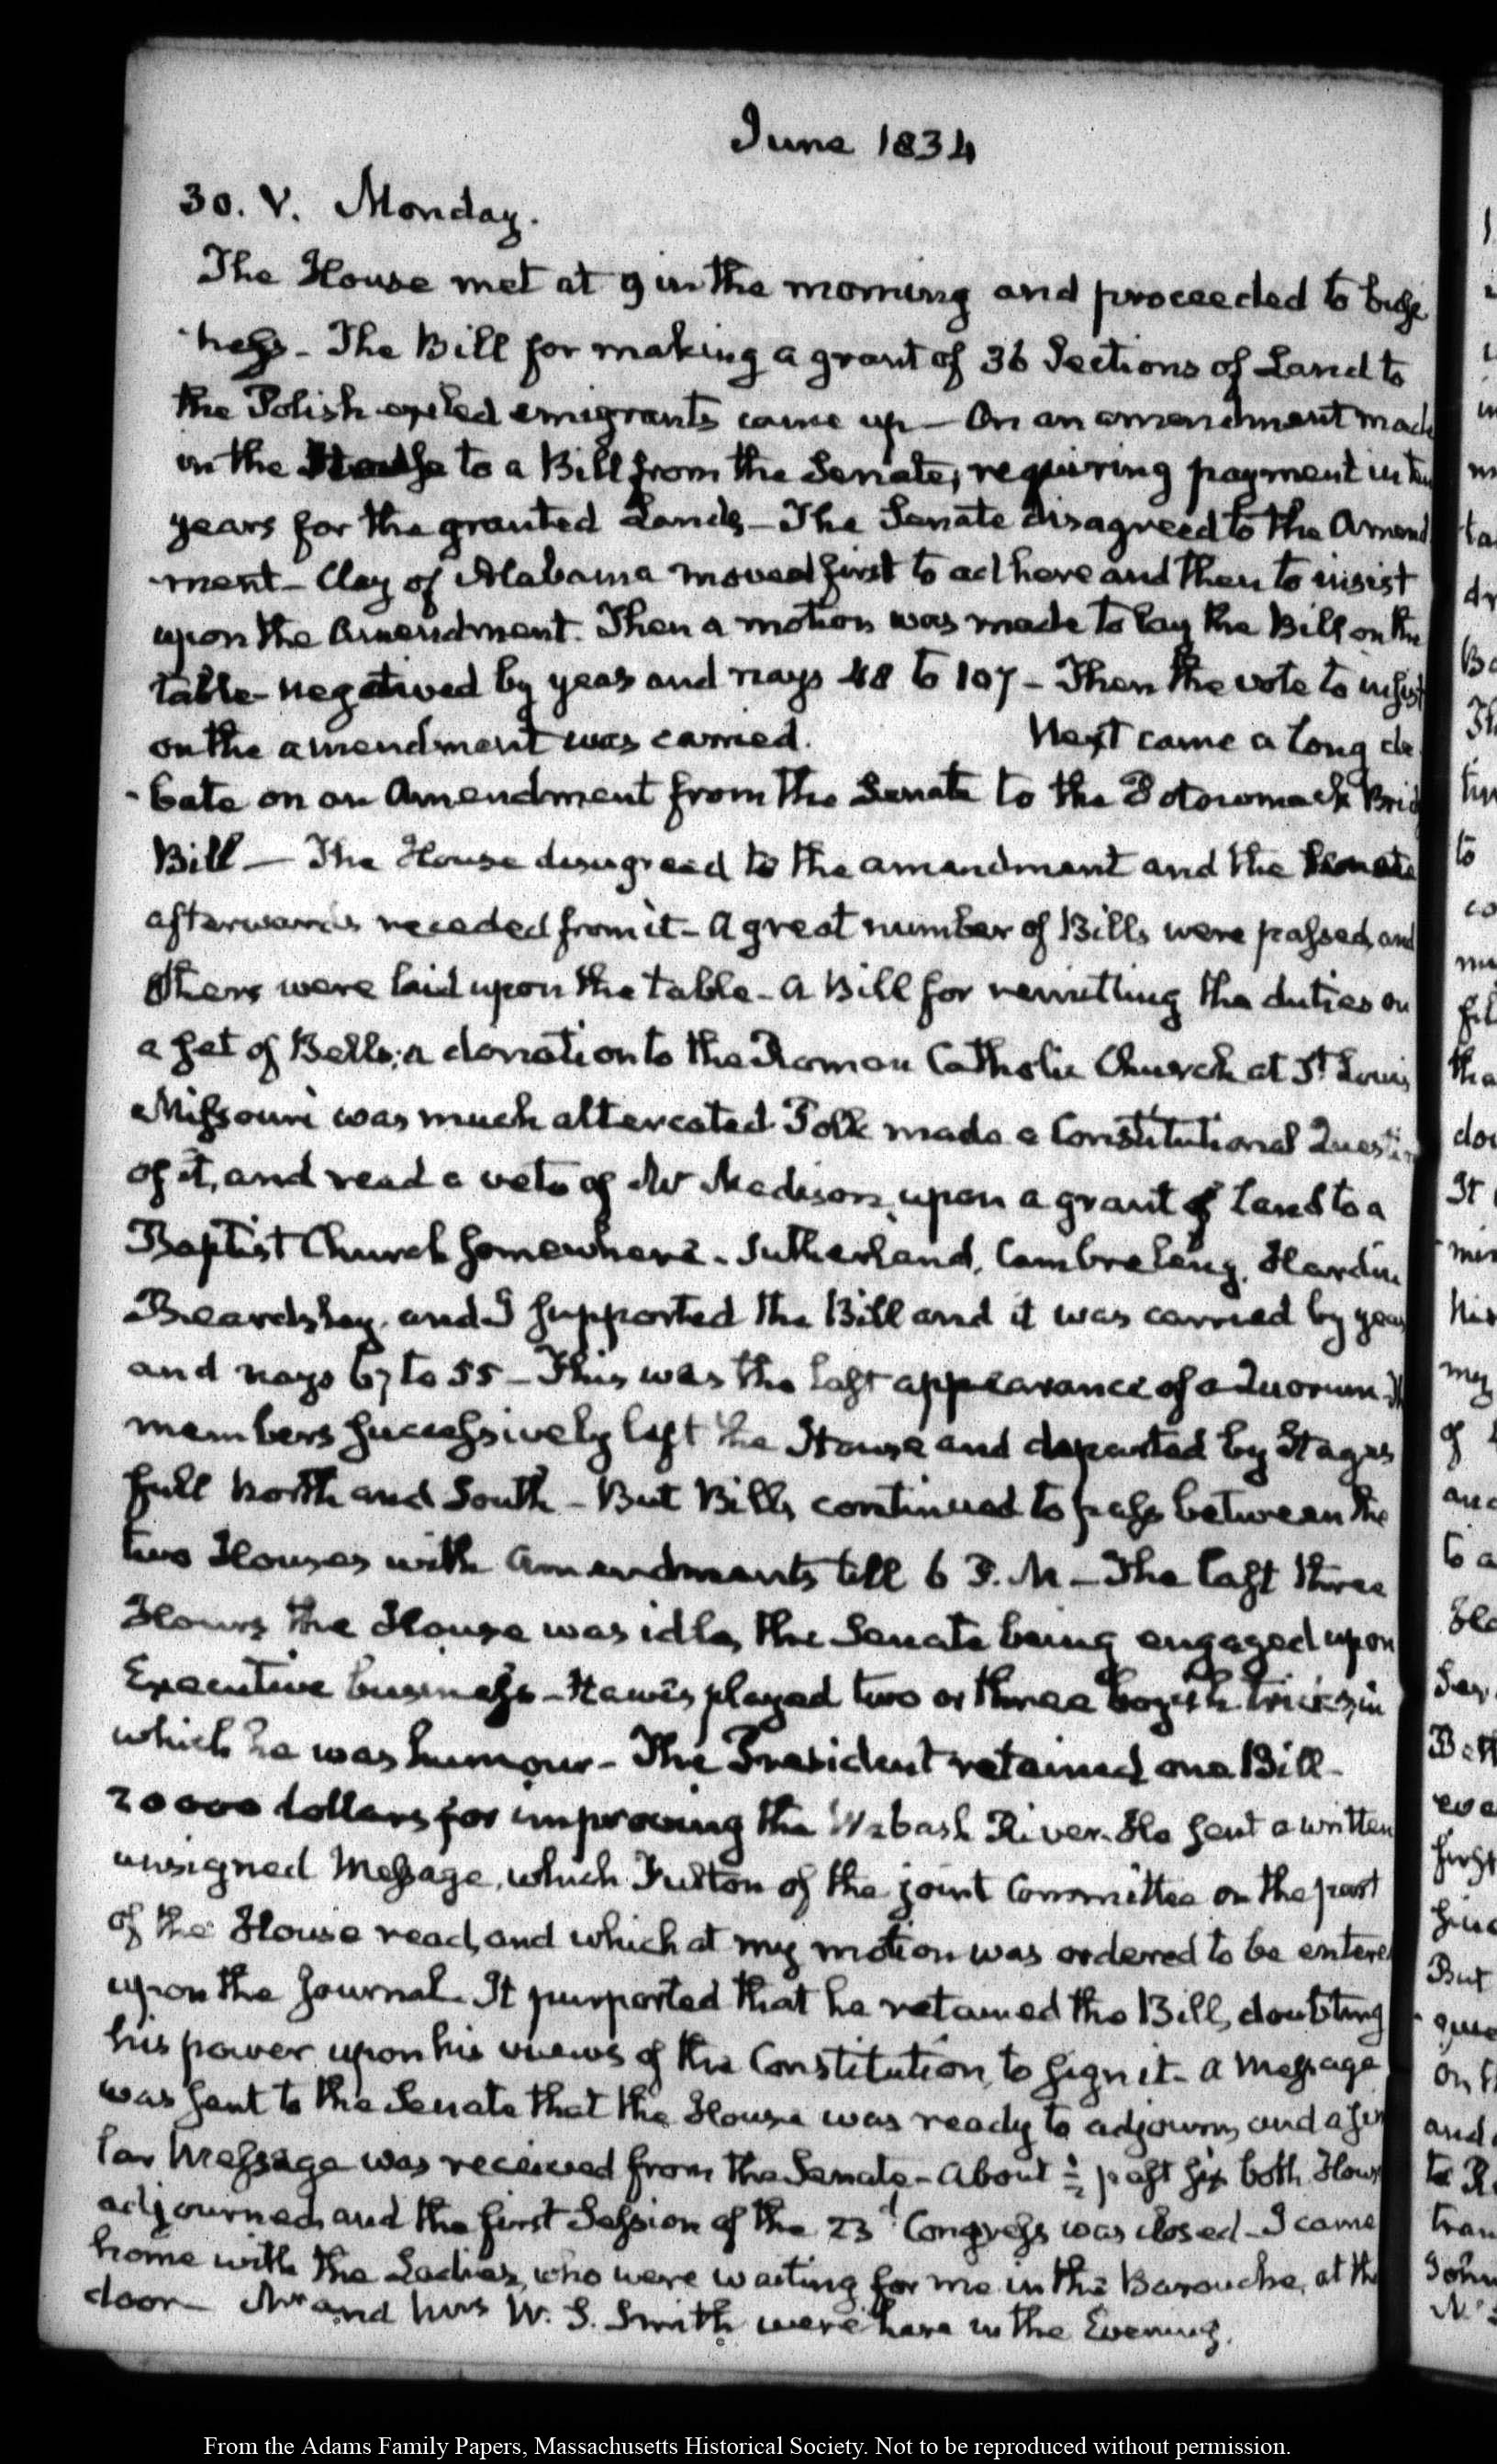 June 1834
30. V. Monday.
The House met at 9 in the morning and proceeded to busi
-ness - The Bill for making a grant of 36 Sections of Land to
the Polish exiled emigrants came up - On an amendment made
in the House to a Bill from the Senate, requiring payment in ten
years for the granted Lands - The Senate disagreed to the Amend
-ment - Clay of Alabama moved first to adhere and then to insist
upon the Amendment. Then a motion was made to lay the Bill on the
table - negatived by yeas and nays 48 to 107 - Then the vote to insist
on the amendment was carried. Next came a long de
-bate on an Amendment from the Senate to the Potowmack Bridg
Bill - The House disagreed to the amendment and the Senate
afterwards receded from it - A great number of Bills were passed, and
others were laid upon the table - A Bill for remitting the duties on
a set of Bells; a donation to the Roman Catholic Church at St. Louis
Missouri was much altercated Polk made a Constitutional Question
of it, and read a veto of Mr Madison, upon a grant of Land to a
Baptist Church somewhere - Sutherland, Cambreleng, Hardin
Beardsley, and I supported the Bill and it was carried by yeas
and nays 67 to 55 - This was the last appearance of a Quorum. The
members successively left the House and departed by Stages
full North and South - But Bills continued to pass between the
two Houses with Amendments till 6 P.M - The last three
Hours the House was idle, the Senate being engaged upon
Executive business - Hawes played two or three boyish tricks, in
which he was humour - The President retained one Bill -
20000 dollars for improving the Wabash River. He sent a written
unsigned Message, which Fulton of the joint Committee on the part
of the House read, and which at my motion was ordered to be entered
upon the Journal. It purported that he retained the Bill, doubting
his power upon his views of the Constitution, to sign it - A Message
was sent to the Senate that the House was ready to adjourn, and a simi
lar Message was received from the Senate - About ½ past six both Houses
adjourned, and the first Session of the 23d Congress was closed - I came
home with the Ladies, who were waiting for me in the Barouche, at the
door - Mr and Mrs W. S. Smith were here in the Evening.
From the Adams Family Papers, Massachusetts Historical Society. Not to be reproduced without permission.